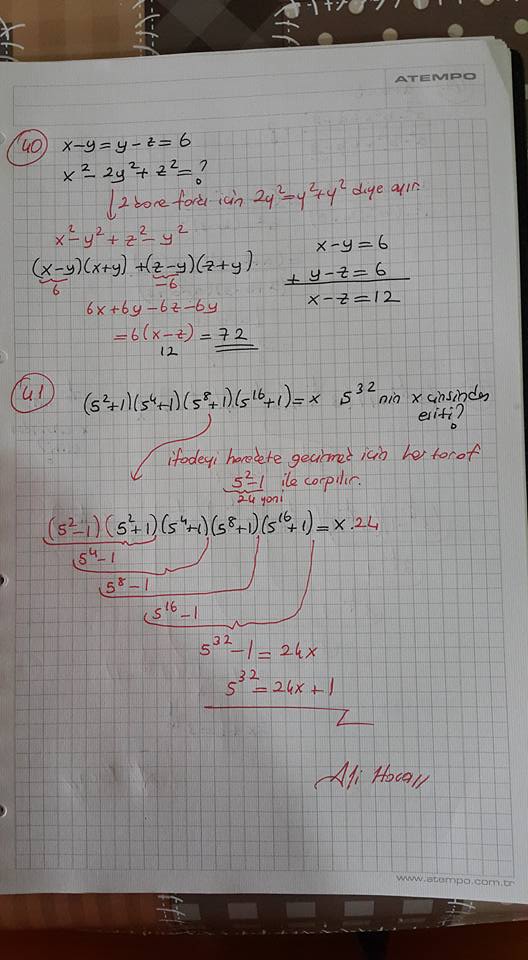 ATEMPO
40 x-y=y-z=6
x²-2y²+z²=?
2 kare farkı için 2y²=y²+y² diye ayır.
x²-y²+z²-y²
(x-y)(x+y)+(z-y)(z+y)
6 -6
6x+6y-6z-6y
=6(x-z)=72
12
x-y=6
+ y-z=6
x-z=12
41 (5²+1)(5⁴+1)(5⁸+1)(5¹⁶+1)=x 5³² nin x cinsinden
eşiti?
ifadeyi harekete geçirmek için her taraf
5²-1 ile çarpılır.
24 yani
(5²-1)(5²+1)(5⁴+1)(5⁸+1)(5¹⁶+1)=x.24
5⁴-1
5⁸-1
5¹⁶-1
5³²-1=24x
5³²=24x+1
Ali Hoca
www.atempo.com.tr